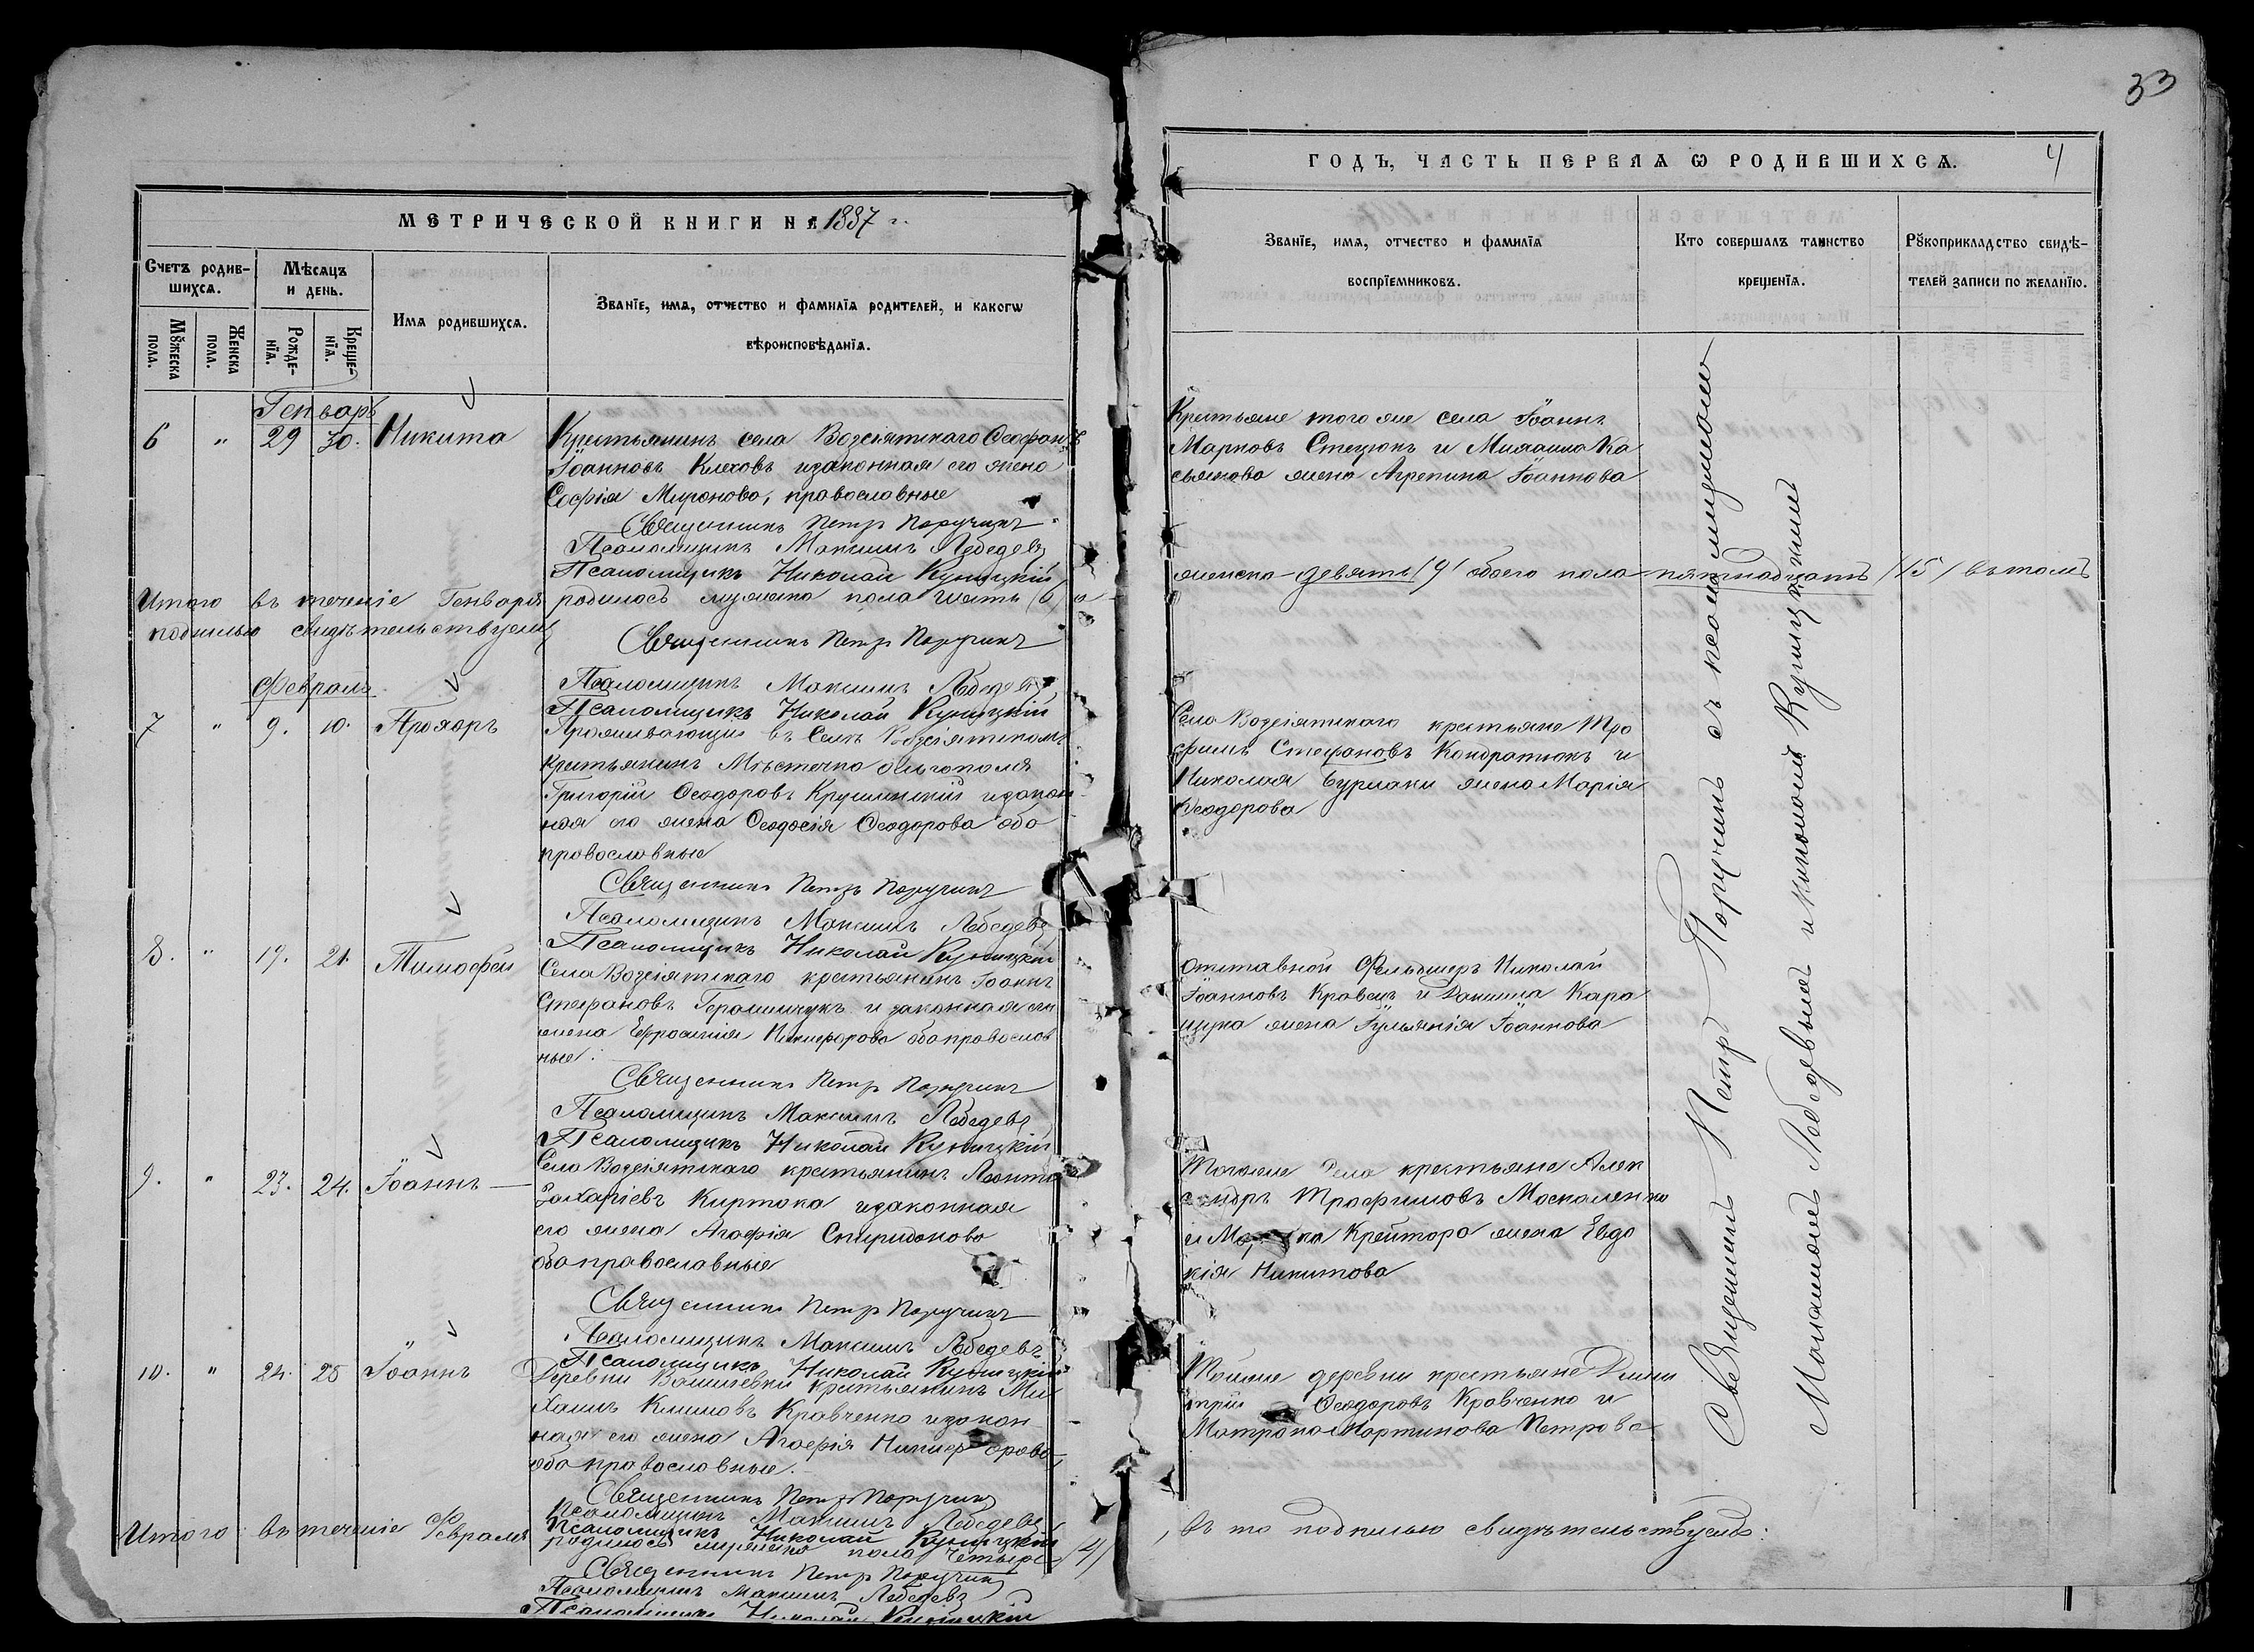 МЕТРИЧЕСКОЙ КНИГИ НА 1887 г.
Счетъ родившихся.
Мѣсяцъ и день.
Имя родившихся.
Званіе, имя, отчество и фамилія родителей, и какогѡ
вѣроисповѣданія.
Мꙋжеска пола.
Женска пола.
Рожденія.
Крещенія.
Генварь
6 " 29 30. Никита
Крестьянинъ села Возсіятскаго Ѳеофанъ
Іоанновъ Клеховъ изаконная его жена
Софія Миронова, православные
Священникъ Петръ Поручикъ
Псаломщикъ Максимъ Лебедевъ
Псаломщикъ Николай Куницкій
Итого въ теченіе Генваря родилось мужеска пола шесть (6) и
подписью свидѣтельствуемъ
Священникъ Петръ Поручикъ
Псаломщикъ Максимъ Лебедевъ
Псаломщикъ Николай Куницкій
Февраль
7 " 9. 10. Прохоръ
Проживающій въ Селѣ Возсіятскомъ
крестьянинъ Мѣстечка Ольгополя
Григорій Ѳеодоровъ Крушинскій изакон
ная его жена Ѳеодосія Ѳеодорова оба
православные
Священникъ Петръ Поручикъ
Псаломщикъ Максимъ Лебедевъ
Псаломщикъ Николай Куницкій
8. " 19. 21. Тимофей
Села Возсіятскаго крестьянинъ Іоаннъ
Стефановъ Герасимчукъ и законная его
жена Ефросинія Никифорова оба православ
ные.
Священникъ Петръ Поручикъ
Псаломщикъ Максимъ Лебедевъ
Псаломщикъ Николай Куницкій
9. " 23. 24. Іоаннъ
Села Возсіятскаго крестьянинъ Леонтій
Захаріевъ Киртока изаконная
его жена Агафія Спиридонова
оба православные
Священникъ Петръ Поручикъ
Псаломщикъ Максимъ Лебедевъ
Псаломщикъ Николай Куницкій
10. " 24. 25 Іоаннъ
Деревни крестьянинъ Ми
хаилъ Климовъ Кравченко изакон
ная его жена Агафія Никифорова
оба православные.
Священникъ Петръ Поручикъ
Псаломщикъ Максимъ Лебедевъ
Псаломщикъ Николай Куницкій
Итого въ теченіе Февраля родилось мужеска пола четыре (4)
Священникъ Петръ Поручикъ
Псаломщикъ Максимъ Лебедевъ
Псаломщикъ Николай Куницкій
33
ГОДЪ, ЧАСТЬ ПЕРВАЯ Ѡ РОДИВШИХСЯ. 4
Званїе, имя, отчество и фамилїя
воспрїемниковъ.
Кто совершалъ таинство
крещенїя.
Рꙋкоприкладство свидѣ-
телей записи по желанїю.
Крестьяне того же села Іоаннъ
Марковъ Стецюкъ и Михаила Ка
сьянова жена Агрепина Іоаннова
женска девять /9/ обоего пола пятнадцать /15/ въ томъ
Села Возсіятскаго крестьяне Тро
фимъ Стефановъ Кондратюкъ и
Николая Бурлаки жена Марія
Ѳеодорова
Отставной Фельдшеръ Николай
Іоанновъ Кравецъ и Даниила Кара
щука жена Іульянія Іоаннова
Тогоже Села крестьяне Алек
сандръ Трофимовъ Москаленко
и Крейтора жена Евдо
кія Никитова
Тойже деревни крестьяне Дими
трій Ѳеодоровъ Кравченко и
Матрона Мартинова Петрова
, въ то подписью свидѣтельствуемъ:
Священникъ Петръ Поручикъ съ псаломщикомъ
Максимомъ Лебедевымъ и Николаемъ Куницкимъ